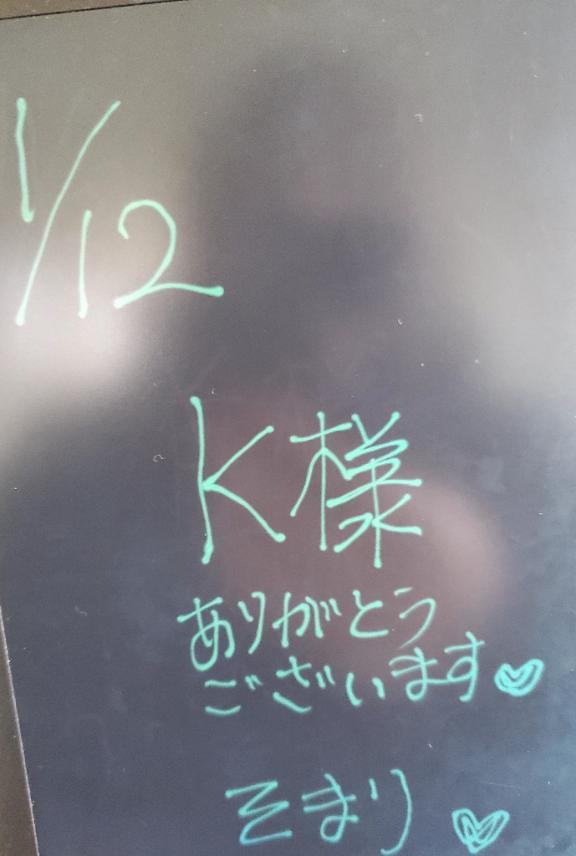 1/12
K様
ありがとう
ございます♥
そまり♥